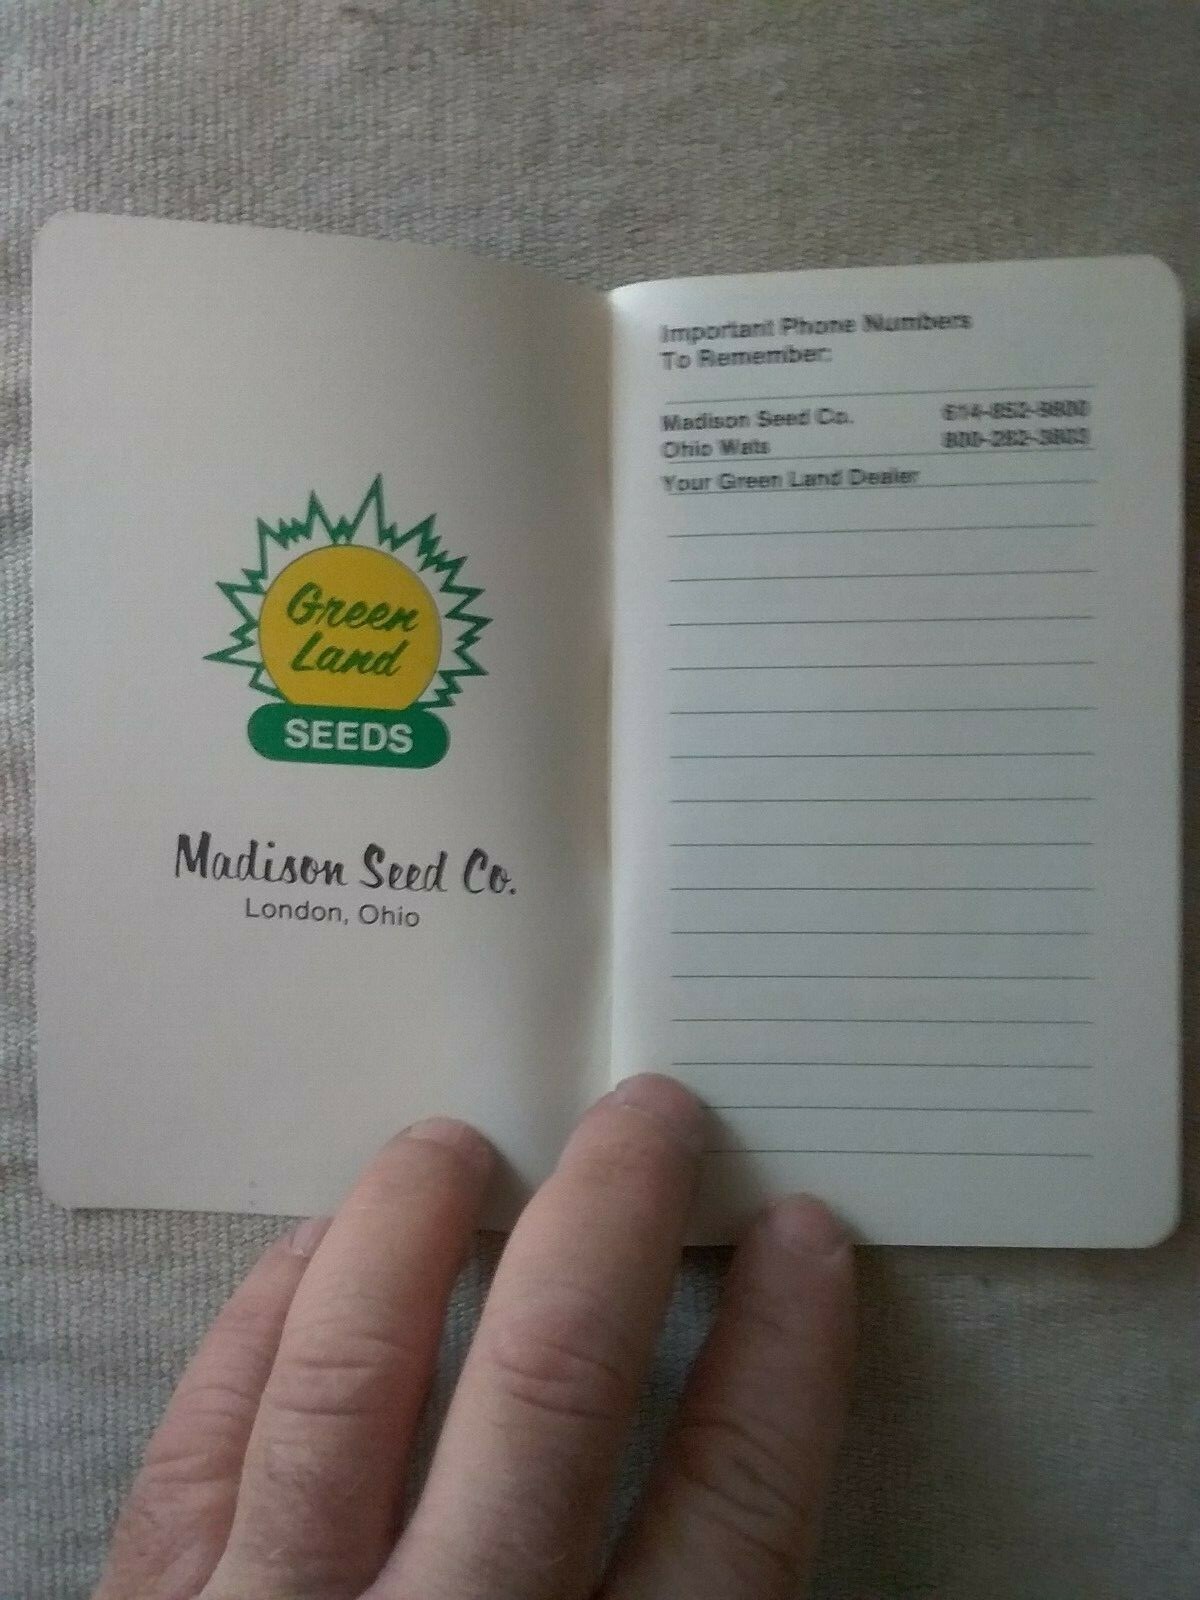 Green
Land
SEEDS
Madison Seed Co.
London, Ohio
Important Phone Numbers
To Remember:
Madison Seed Co. 614-852-9800
Ohio Wats
Your Green Land Dealer